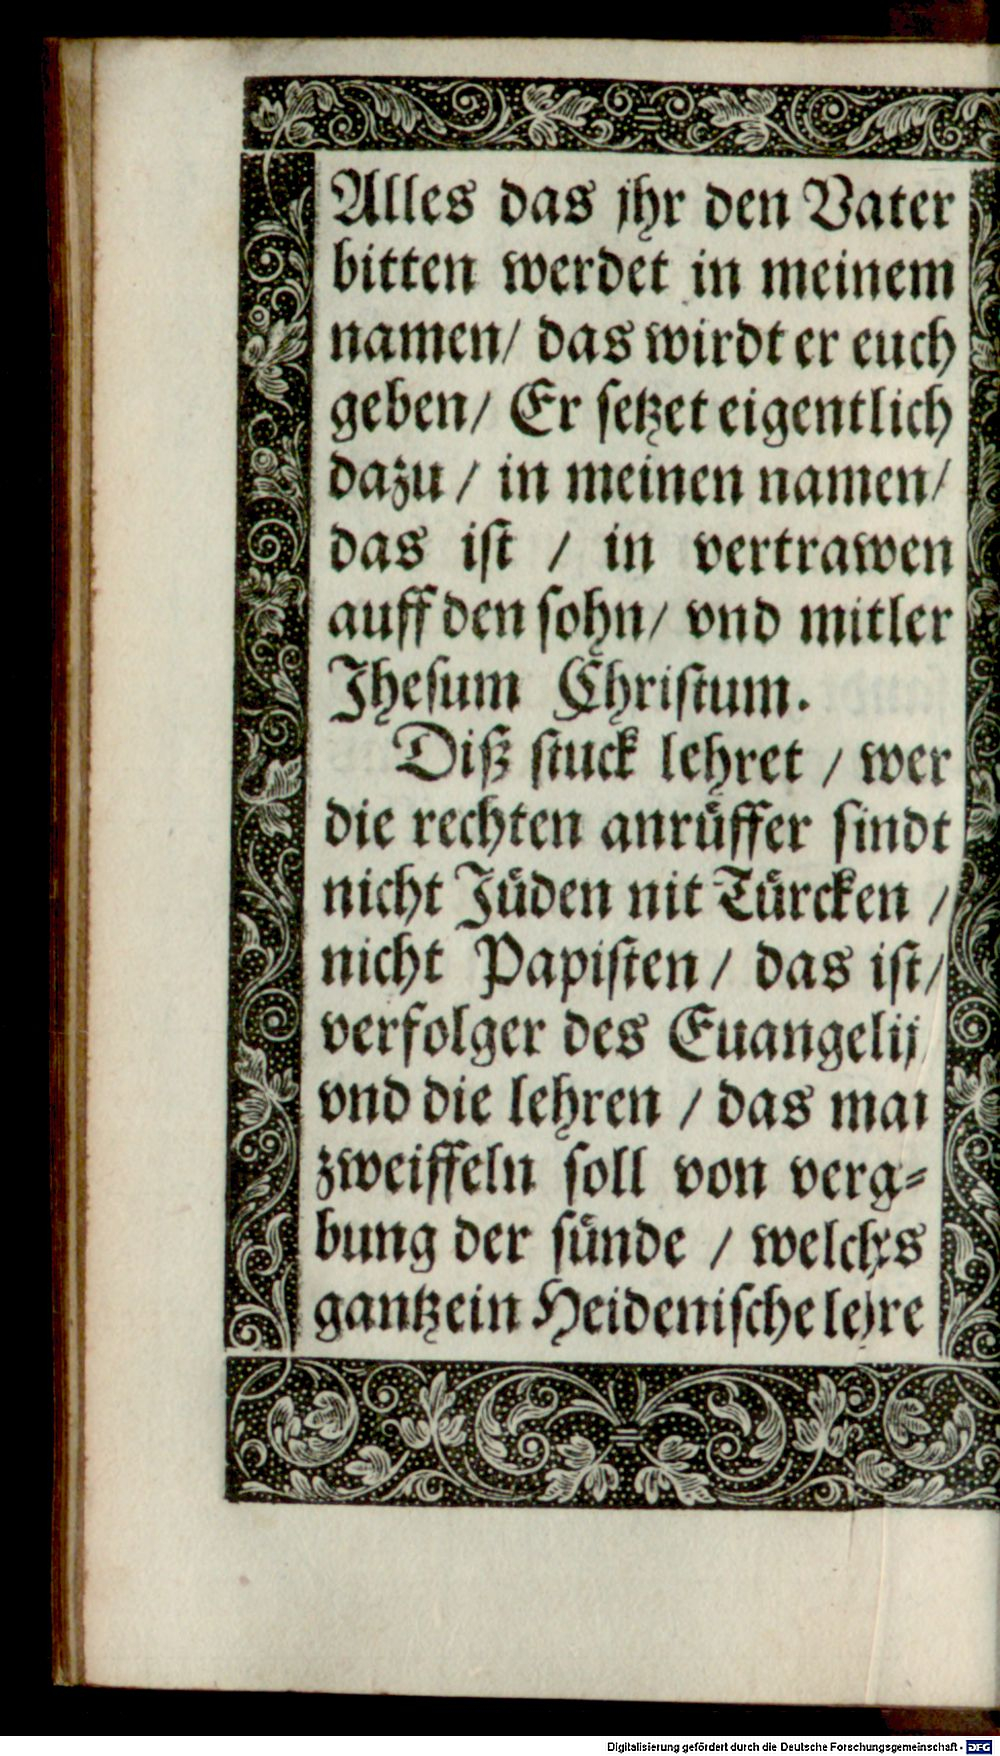 Alles das jhr den Vater
bitten werdet in meinem
namen/ das wirdt er euch
geben/ Er setzet eigentlich
dazu / in meinen namen/
das ist / in vertrawen
auff den sohn/ vnd mitler
Jhesum Christum.
Diß stuck lehret / wer
die rechten anrüffer sindt
nicht Jüden nit Türcken /
nicht Papisten / das ist/
verfolger des Euangelij
vnd die lehren / das man
zweiffeln soll von verg-
bung der sünde / welchs
gantz ein Heidenische lehre
Digitalisierung gefördert durch die Deutsche Forschungsgemeinschaft - DFG